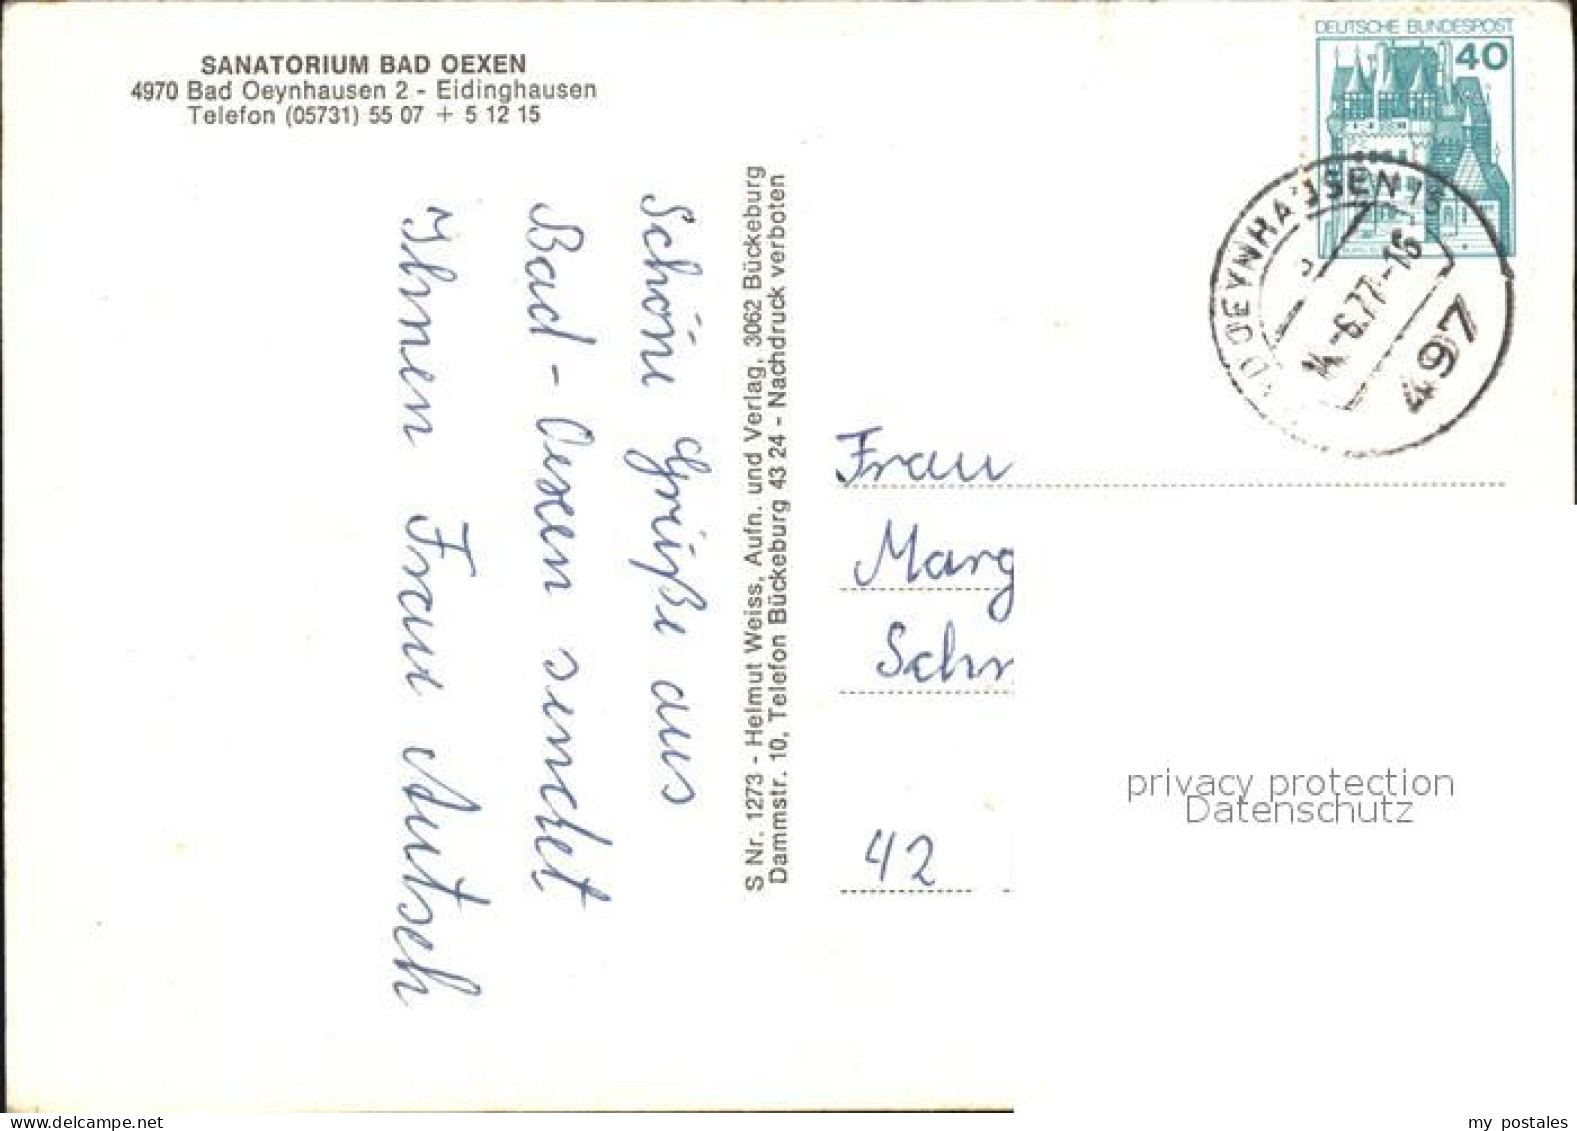 SANATORIUM BAD OEXEN
4970 Bad Oeynhausen 2 - Eidinghausen
Telefon (05731) 55 07 + 5 12 15
Schöne Grüße aus
Bad-Oexen sendet
Ihnen Frau Autsch
S Nr. 1273 - Helmut Weiss, Aufn. und Verlag, 3062 Bückeburg
Dammstr. 10, Telefon Bückeburg 43 24 - Nachdruck verboten
DEUTSCHE BUNDESPOST
40
D OEYNHAUSEN 1
-6.77-16
497
Frau
Marg
Schr
42
privacy protection
Datenschutz
my postales